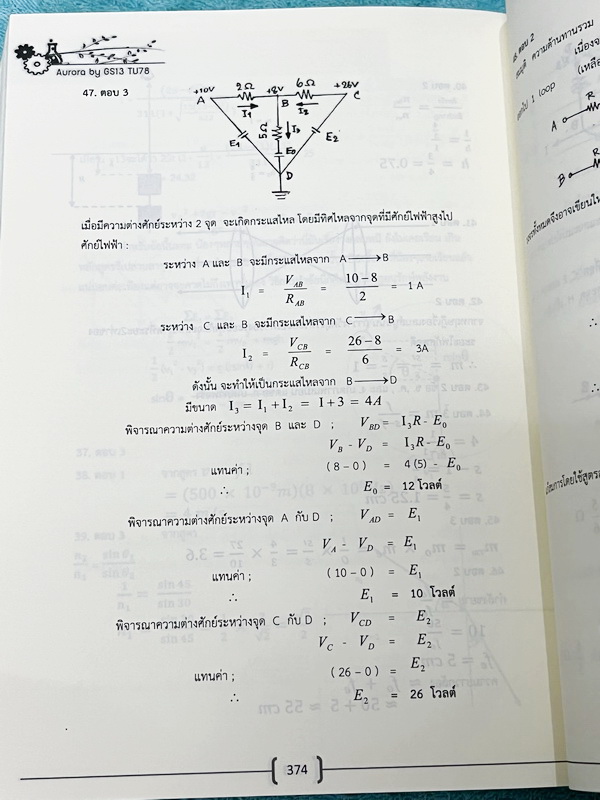 Aurora by GS13 TU78
47. ตอบ 3
+10V 2Ω +8V 6Ω +26V
A B C
I1 I2
5Ω I3
E1 E0 E2
D
เมื่อมีความต่างศักย์ระหว่าง 2 จุด จะเกิดกระแสไหล โดยมีทิศไหลจากจุดที่มีศักย์ไฟฟ้าสูงไป
ศักย์ไฟฟ้า :
ระหว่าง A และ B จะมีกระแสไหลจาก A ⟶ B
I₁ = V_AB / R_AB = (10 − 8) / 2 = 1 A
ระหว่าง C และ B จะมีกระแสไหลจาก C ⟶ B
I₂ = V_CB / R_CB = (26 − 8) / 6 = 3A
ดังนั้น จะทำให้เป็นกระแสไหลจาก B ⟶ D
มีขนาด I₃ = I₁ + I₂ = I + 3 = 4A
พิจารณาความต่างศักย์ระหว่างจุด B และ D ; V_BD = I₃R - E₀
V_B - V_D = I₃R - E₀
แทนค่า ; (8 – 0) = 4 (5) - E₀
∴ E₀ = 12 โวลต์
พิจารณาความต่างศักย์ระหว่างจุด A กับ D ; V_AD = E₁
V_A - V_D = E₁
แทนค่า ; (10 – 0) = E₁
∴ E₁ = 10 โวลต์
พิจารณาความต่างศักย์ระหว่างจุด C กับ D ; V_CD = E₂
V_C - V_D = E₂
แทนค่า ; (26 – 0) = E₂
∴ E₂ = 26 โวลต์
374
ตอบ 2
ความต้านทานรวม
1 loop
A R
B R